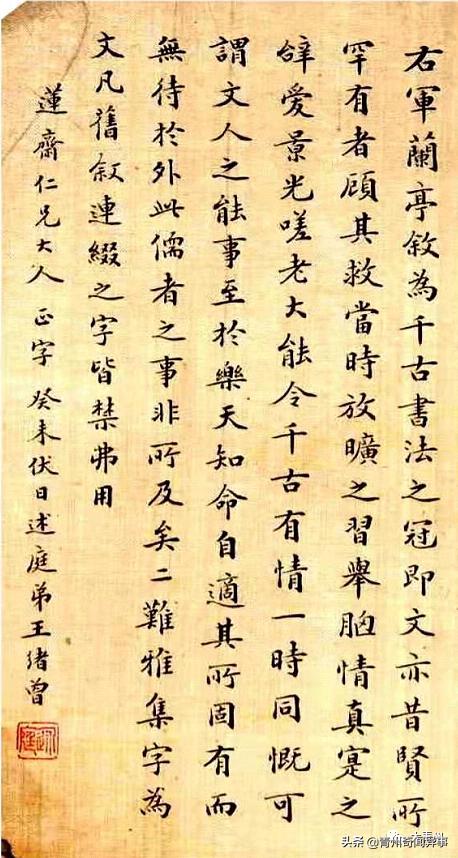 右軍蘭亭敘為千古書法之冠即文亦昔賢所
罕有者顧其救當時放曠之習舉胸情真寔之
辭愛景光嗟老大能令千古有情一時同慨可
謂文人之能事至於樂天知命自適其所固有而
無待於外此儒者之事非所及矣二難雅集字為
文凡舊敘連綴之字皆禁弗用
蓮齋仁兄大人 正字 癸未伏日述庭弟王緒曾
述庭
头条 @青州奇闻异事